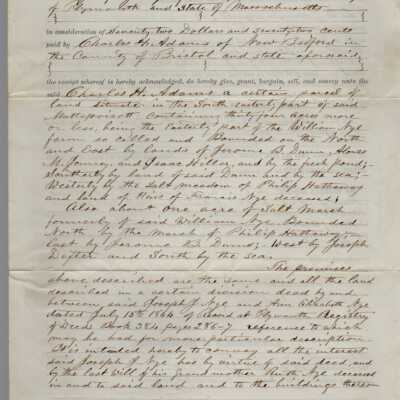 of Plymouth and State of Massachusetts
in consideration of seventy two Dollars and seventy two cents
paid by Charles H. Adams of New Bedford in
the County of Bristol and state aforesaid
the receipt whereof is hereby acknowledged, do hereby give, grant, bargain, sell, and convey unto the
said Charles H. Adams a certain parcel of
land situate in the South easterly part of said
Mattapoisett containing thirty four acres more
or less, being the Easterly part of the William Nye
farm so called and Bounded on the North
and East by land of Jerome B. Dunn,
M. and Isaac and by the fresh pond;
Southerly by land of said Dunn and by the sea;
Westerly by the Salt meadow of Philip Hathaway
and land of Heirs of Francis Nye deceased;
Also about one acre of Salt Marsh
formerly of said William Nye Bounded
North by the Marsh of Philip Hathaway
East by Jerome B. Dunn; West by Joseph
Dexter and South by the sea.
The premises
above described are the same and all the land
described in a certain division deed by and
between said Joseph J. Nye and Ann Elizabeth Nye
dated July 15th 1864 of Record at Plymouth Registry
of Deed Book 324 pages 286-7 reference to which
may be had for more particular description.
It is intended hereby to convey all the interest
said Joseph J. Nye has by virtue of said deed and
by the last Will of his grand mother Ruth Nye deceased
in and to said land and to the buildings thereon